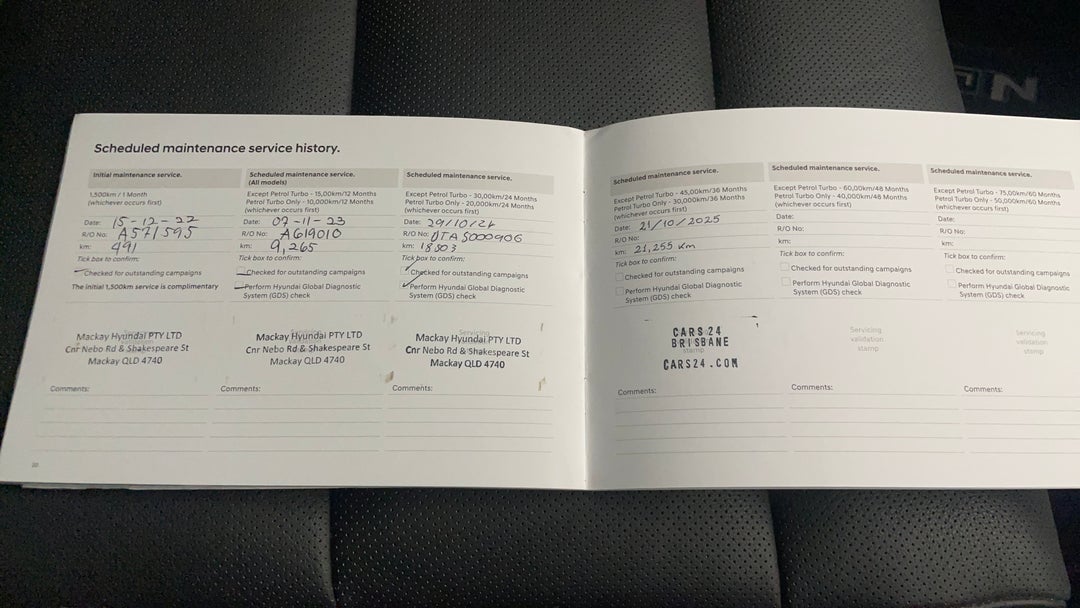 Scheduled maintenance service history.
Initial maintenance service.
1,500km / 1 Month
(whichever occurs first)
Date: 15-12-22
R/O No: A571595
km: 491
Tick box to confirm:
Checked for outstanding campaigns
The initial 1,500km service is complimentary
Mackay Hyundai PTY LTD
Cnr Nebo Rd & Shakespeare St
Mackay QLD 4740
Comments:
Scheduled maintenance service.
(All models)
Except Petrol Turbo - 15,00km/12 Months
Petrol Turbo Only - 10,000km/12 Months
(whichever occurs first)
Date: 07-11-23
R/O No: A619010
km: 9,265
Tick box to confirm:
Checked for outstanding campaigns
Perform Hyundai Global Diagnostic
System (GDS) check
Mackay Hyundai PTY LTD
Cnr Nebo Rd & Shakespeare St
Mackay QLD 4740
Comments:
Scheduled maintenance service.
Except Petrol Turbo - 30,00km/24 Months
Petrol Turbo Only - 20,000km/24 Months
(whichever occurs first)
Date: 29/10/24
R/O No: DTAS000906
km: 18503
Tick box to confirm:
Checked for outstanding campaigns
Perform Hyundai Global Diagnostic
System (GDS) check
Servicing
Mackay Hyundai PTY LTD
Cnr Nebo Rd & Shakespeare St
Mackay QLD 4740
Comments:
20
Scheduled maintenance service.
Except Petrol Turbo - 45,00km/36 Months
Petrol Turbo Only - 30,000km/36 Months
(whichever occurs first)
Date: 21/10/2025
R/O No:
km: 21,255 km
Tick box to confirm:
Checked for outstanding campaigns
Perform Hyundai Global Diagnostic
System (GDS) check
CARS 24
BRISBANE
stamp
CARS24.COM
Comments:
Scheduled maintenance service.
Except Petrol Turbo - 60,00km/48 Months
Petrol Turbo Only - 40,000km/48 Months
(whichever occurs first)
Date:
R/O No:
km:
Tick box to confirm:
Checked for outstanding campaigns
Perform Hyundai Global Diagnostic
System (GDS) check
Servicing
validation
stamp
Comments:
Scheduled maintenance service.
Except Petrol Turbo - 75,00km/60 Months
Petrol Turbo Only - 50,000km/60 Months
(whichever occurs first)
Date:
R/O No:
km:
Tick box to confirm:
Checked for outstanding campaigns
Perform Hyundai Global Diagnostic
System (GDS) check
Servicing
validation
stamp
Comments:
N